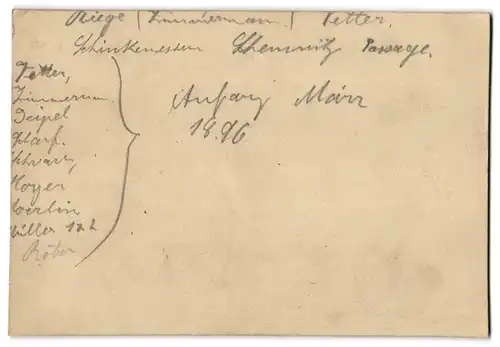 Riege (Zimmermann) Vetter.
Schinkenessen Chemnitz Passage.
Vetter,
Zimmerm.
Seipel
Scharf.
Schwarz,
Hoyer
Müller 1 u. 2
Röber
Anfang März
1896